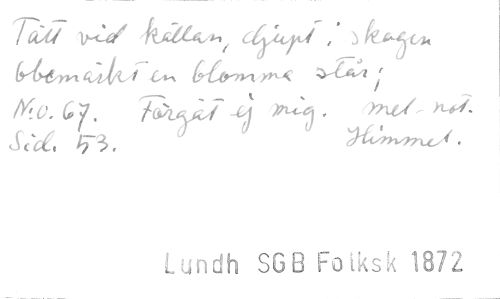 Tätt vid källan, djupt i skogen
obemärkt en blomma står;
N:o. 67. Förgät ej mig. mel-not.
Sid. 53. Himmel.
Lundh SGB Folksk 1872